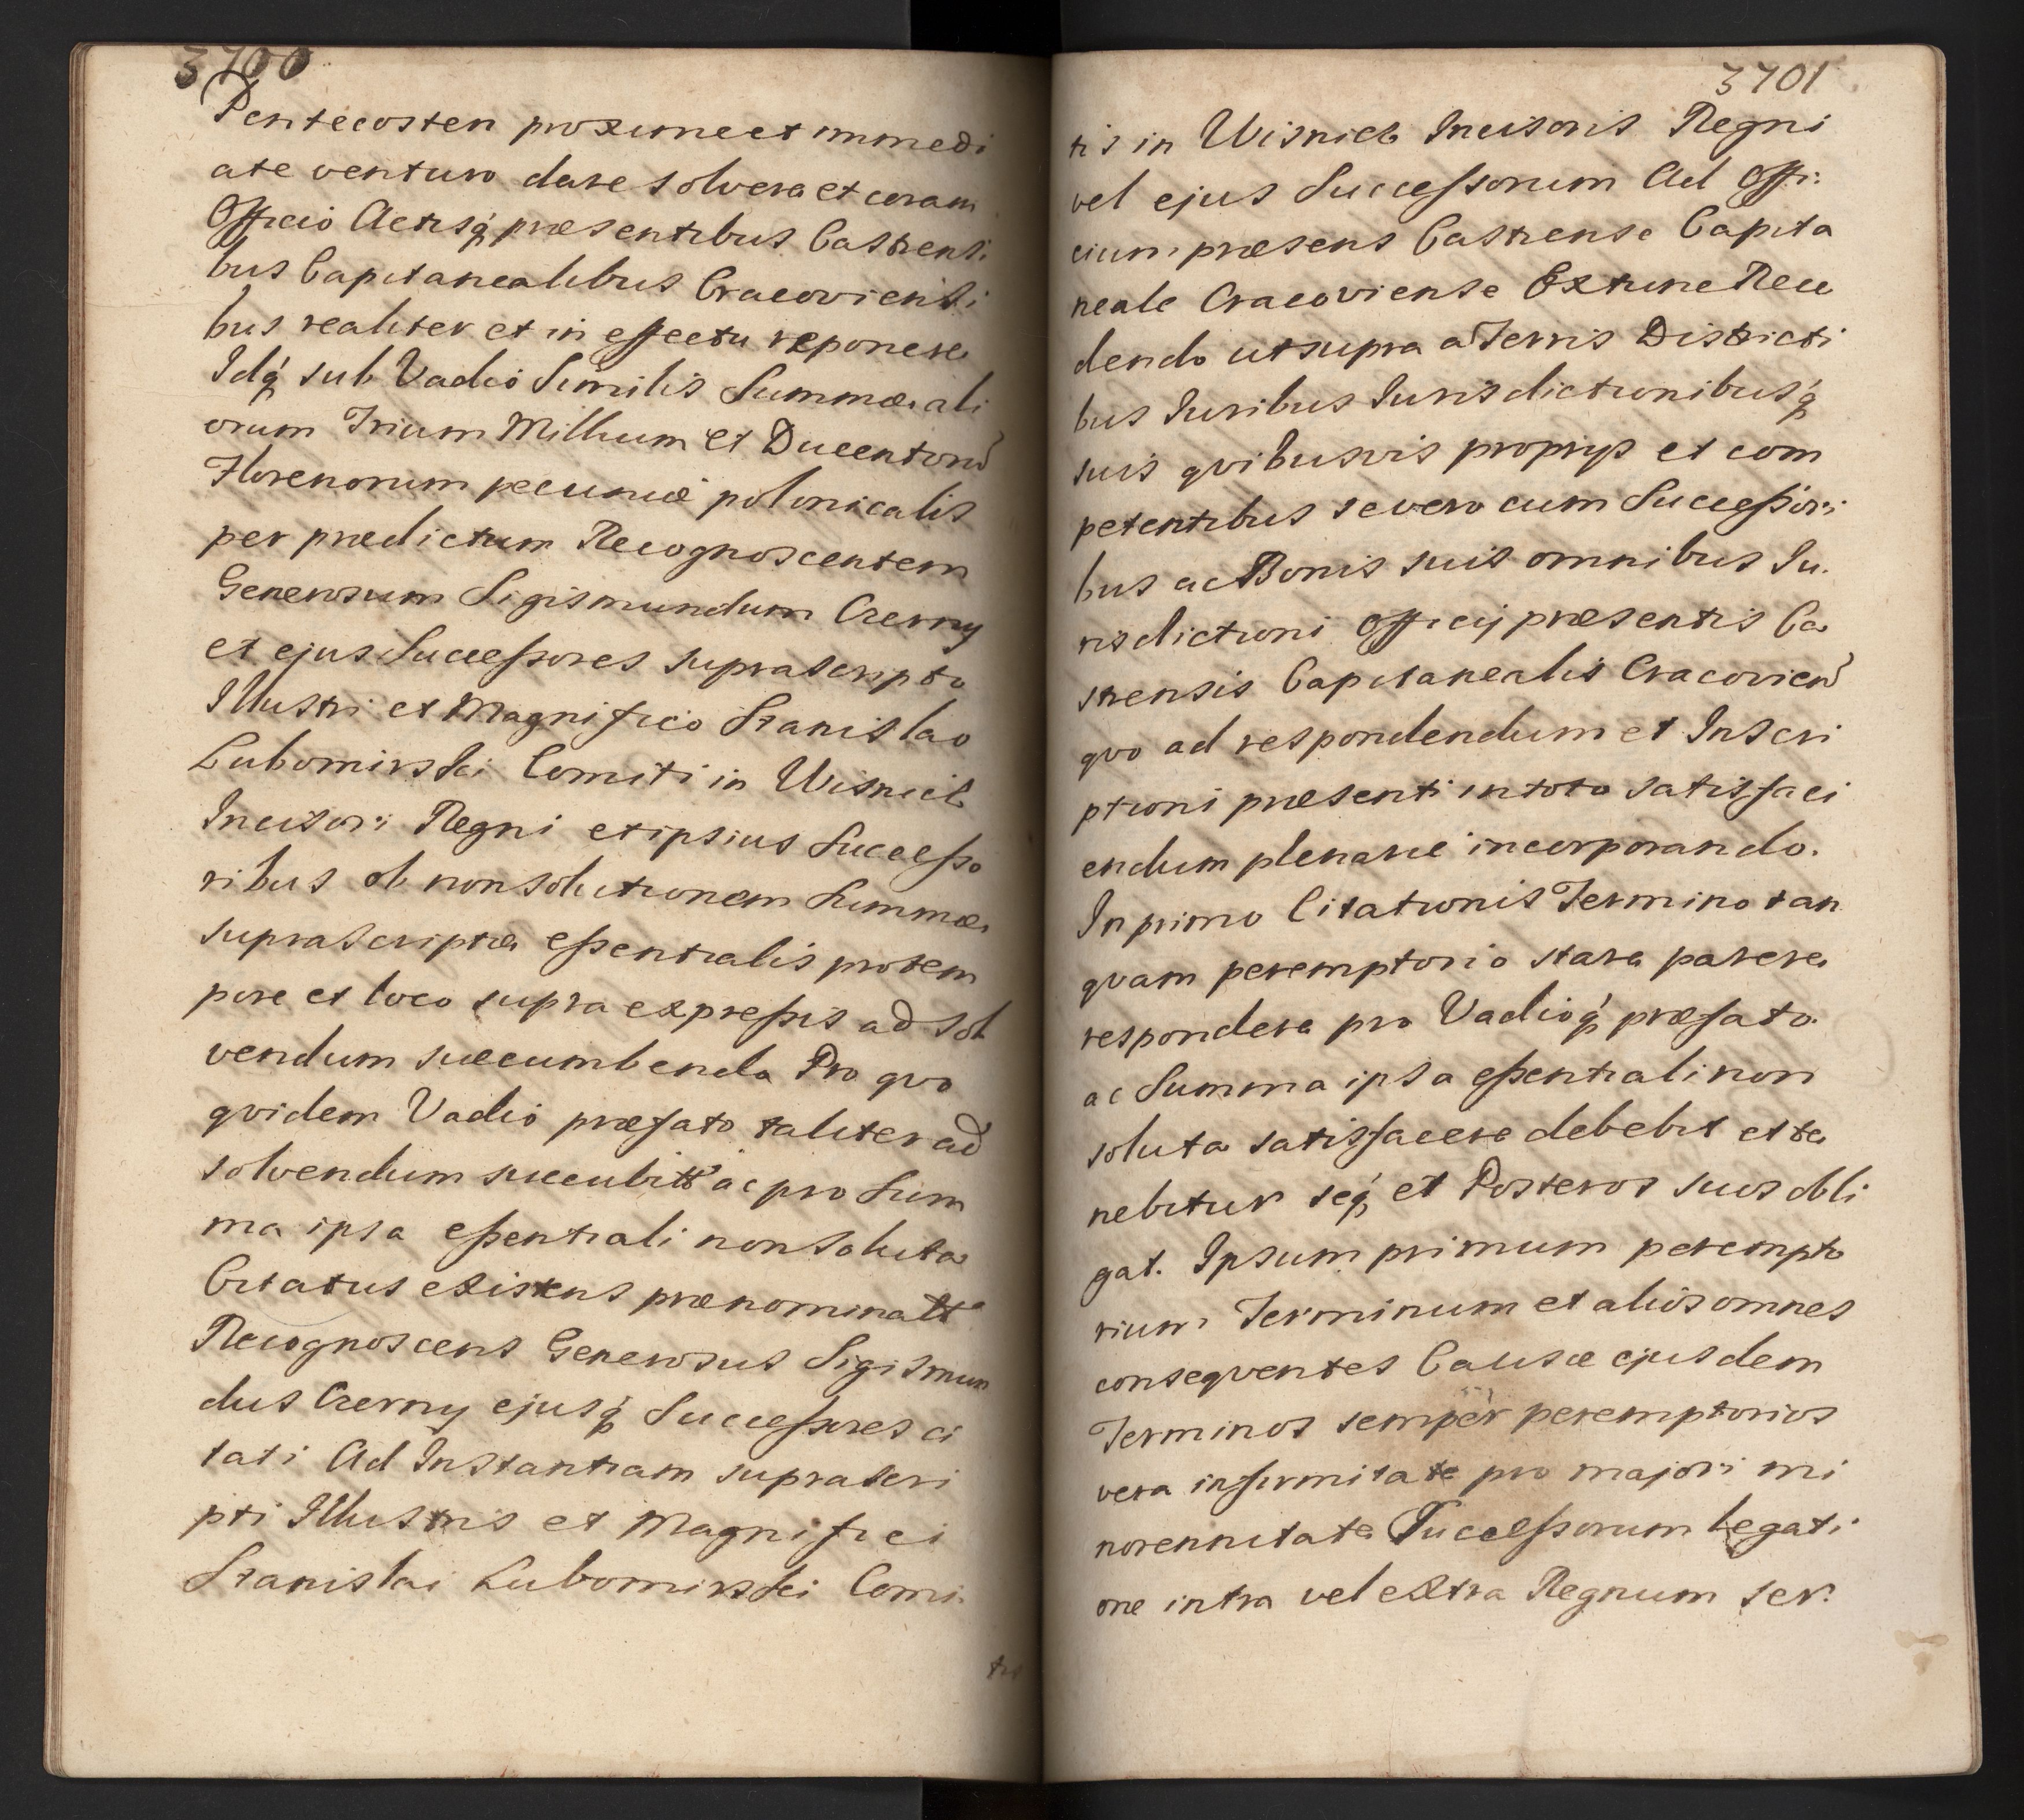 3700
Pentecosten proxime et immedi
ate venturo dare solvere et coram
Officio Actisq́ præsentibus Castrensi
bus Capitanealibus Cracoviensi
bus realiter et in effectu reponere
Idq́ sub Vadio Similis Summæ ali
orum Trium Millium et Ducentorũ
Florenorum pecuniæ polonicalis
per prædictum Recognoscentem
Generosum Sigismundum Czerny
et ejus Successores suprascripto
Illustri et Magnifico Stanislao
Lubomirski Comiti in Wisnicz
Incisori Regni et ipsius Successo
ribus ob non solutionem Summæ
suprascriptæ essentialis pro tem
pore et loco supra expressis ad sol
vendum succumbenda Pro quo
qvidem Vadio præfato taliter ad
solvendum succubitto ac pro Sum
ma ipsa essentiali non soluta
Citatus existens prænominatt
Recognoscens Generosus Sigismun
dus Czerny ejusq́ Successores ci
tati Ad Instantiam suprascri
pti Illustris et Magnifici
Stanislai Lubomirski Comi
tis
3701
tis in Wisnicz Incisoris Regni
vel ejus Successorum Ad Offi
cium præsens Castrense Capita
neale Cracoviense Extunc Rece
dendo ut supra a Terris Districti
bus Iuribus Iurisdictionibusq́
suis qvibusvis proprys et com
petentibus se vero cum Successori
bus ac Bonis suis omnibus Iu
risdictioni Officij præsentis Ca
strensis Capitanealis Cracovieñ
qvo ad respondendum et Inscri
ptioni præsenti in toto satisfaci
endum plenarie incorporando.
In primo Citationis Termino tan
qvam peremptorio stare parere
respondere pro Vadioq́ præfato
ac Summa ipsa essentiali non
soluta satisfacere debebit et te
nebitur seq́ et Posteros suos obli
gat. Ipsum primum perempto
rium Terminum et alios omnes
conseqventes Causæ ejusdem
Terminos semper peremptorios
vera infirmitate pro majori mi
norennitate Successorum Legati
one intra vel extra Regnum ser